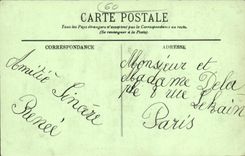 60
CARTE POSTALE
Tous les Pays étrangers n'acceptent pas la Correspondance au recto.
(Se renseigner à la Poste)
CORRESPONDANCE
ADRESSE
Amitié Sincère
Renée
Monsieur et
Madame Dela
rue Lekain
Paris